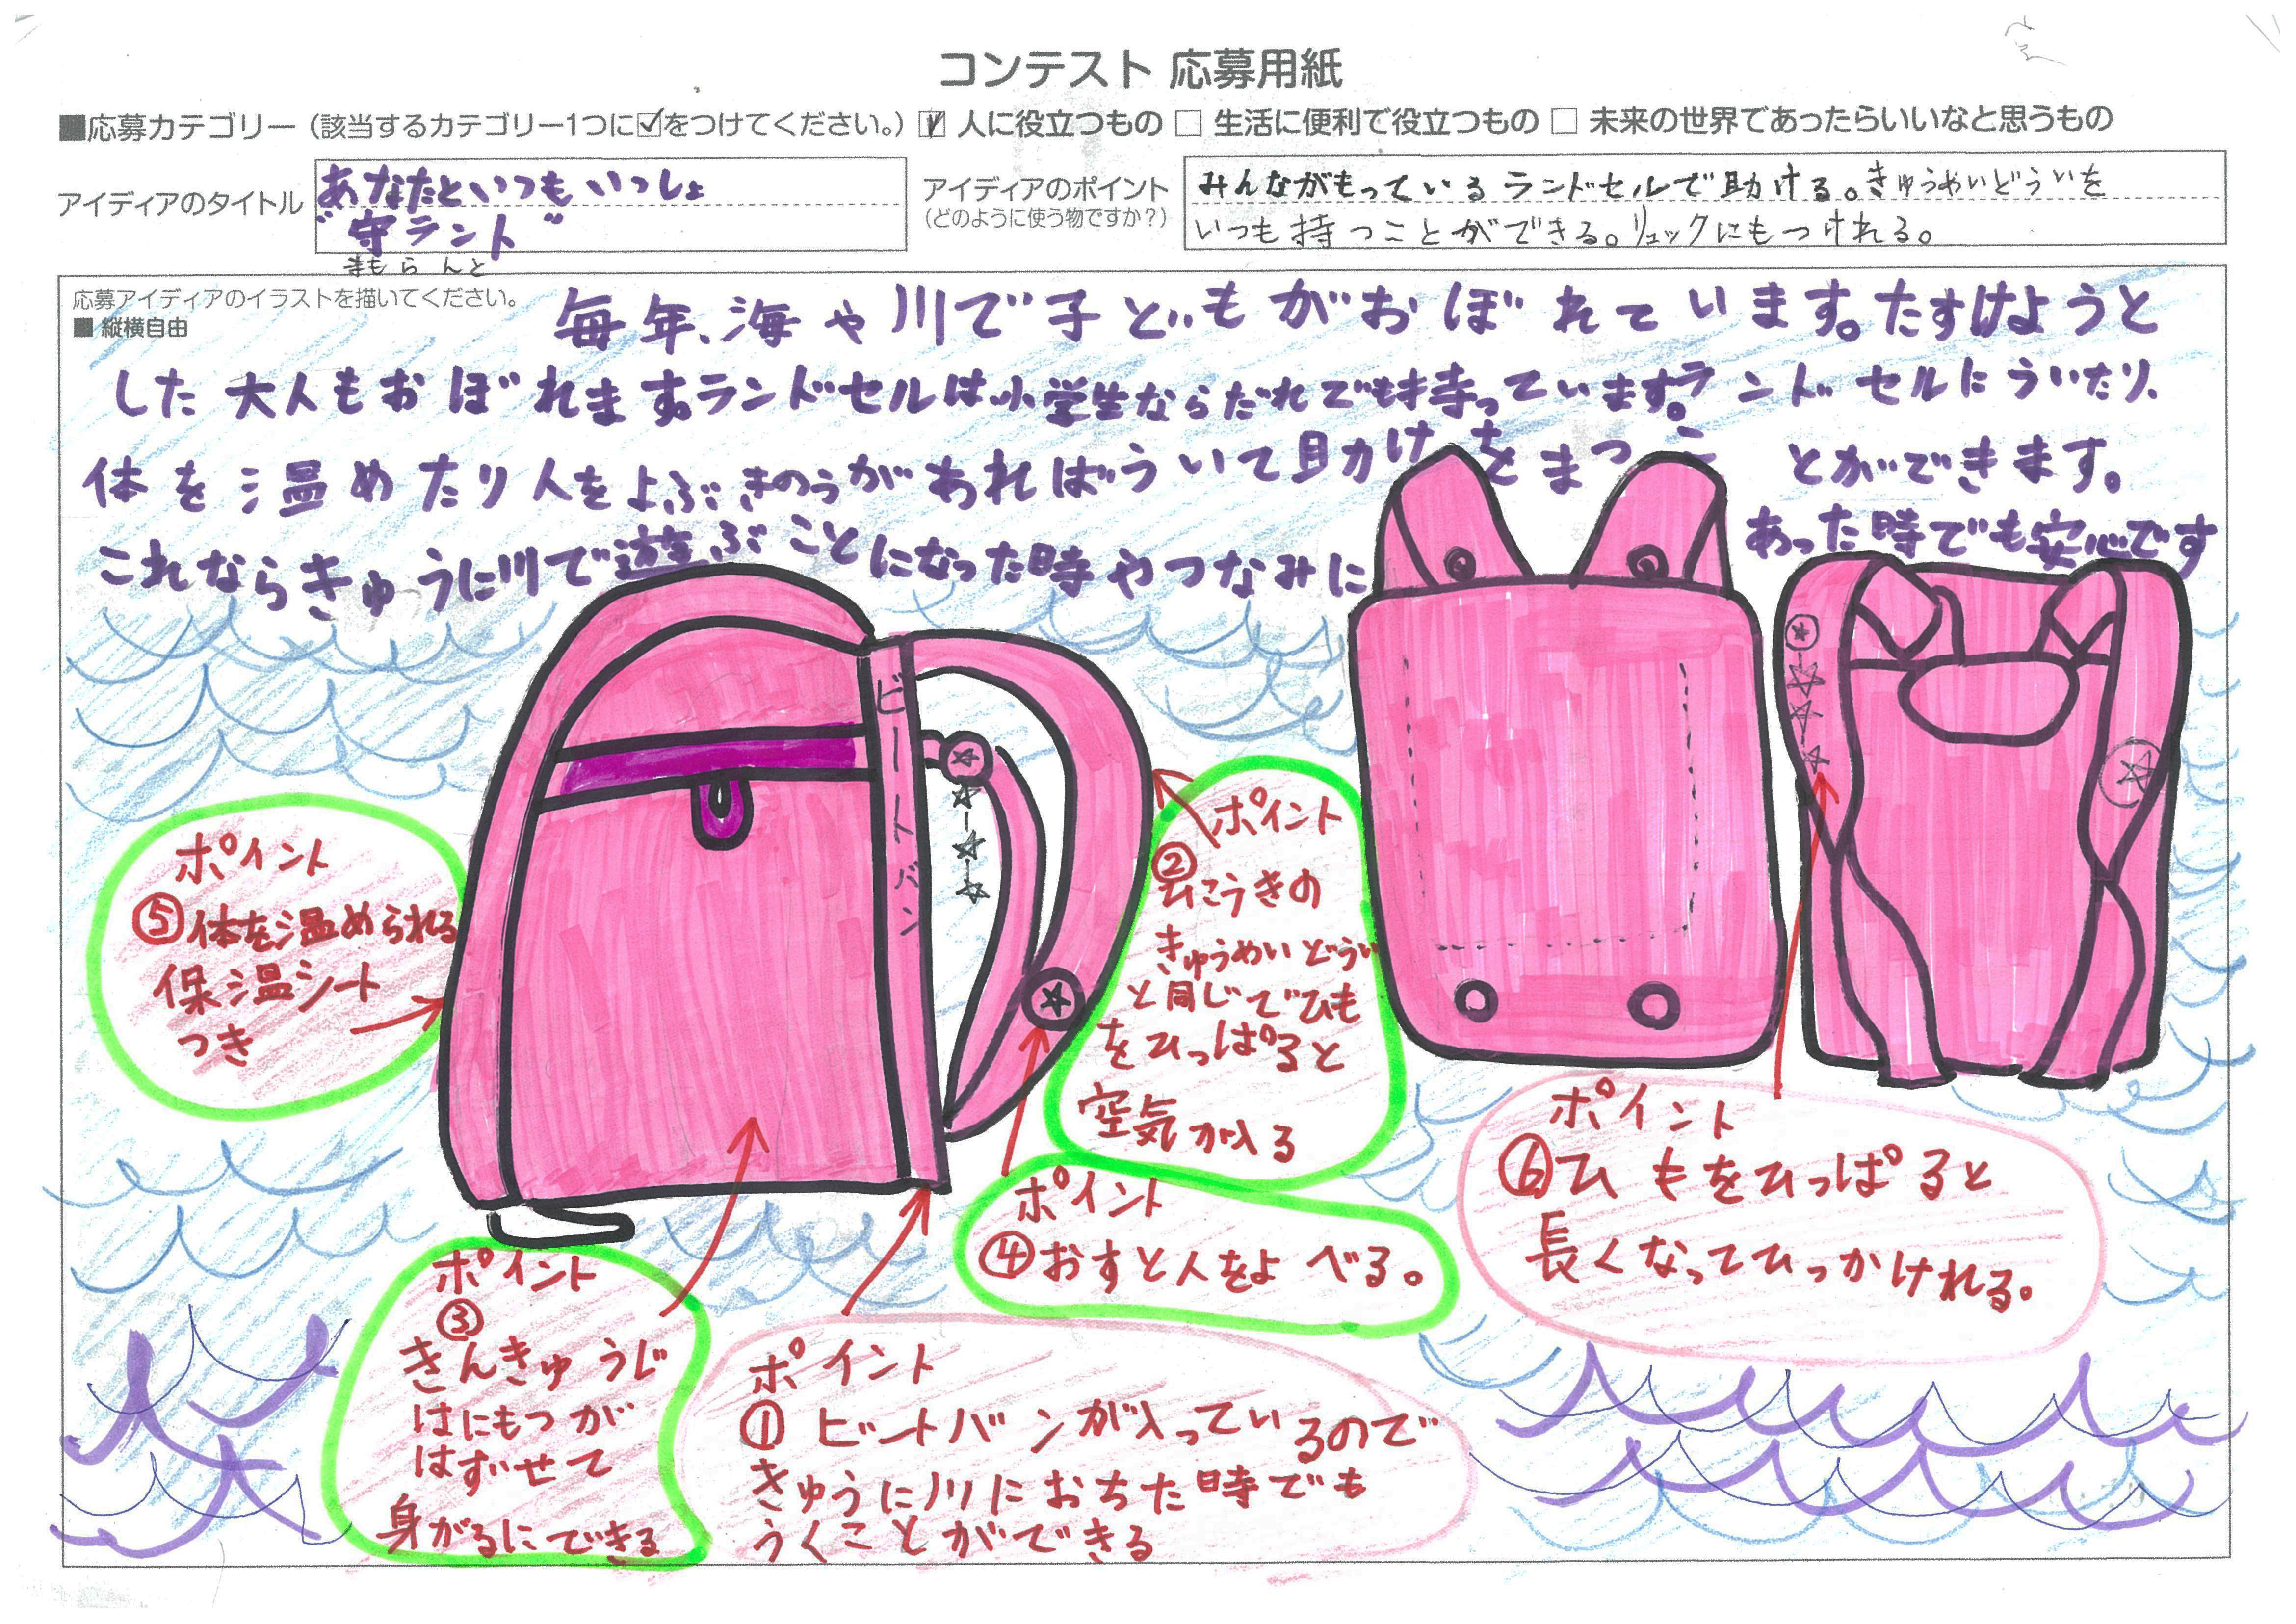 コンテスト 応募用紙
■応募カテゴリー（該当するカテゴリー1つに☑をつけてください。）☑ 人に役立つもの □ 生活に便利で役立つもの □ 未来の世界であったらいいなと思うもの
アイディアのタイトル
あなたといつもいっしょ
"守ラント"
まもらんと
アイディアのポイント
（どのように使う物ですか？）
みんながもっているランドセルで助ける。きゅうめいどういを
いつも持つことができる。リュックにもつけれる。
応募アイディアのイラストを描いてください。
■ 縦横自由
毎年、海や川で子どもがおぼれています。たすけようと
した大人もおぼれます。ランドセルは小学生ならだれでも持っています。ランドセルにういたり、
体を温めたり人をよぶきのうがあればういて助けをまつことができます。
これならきゅうに川で遊ぶことになった時やつなみにあった時でも安心です
ビートバン
ポイント
⑤体を温められる
保温シート
つき
ポイント
②
ひこうきの
きゅうめいどうい
と同じでひも
をひっぱると
空気が入る
ポイント
④おすと人をよべる。
ポイント
⑥ひもをひっぱると
長くなってひっかけれる。
ポイント
③
きんきゅうじ
はにもつが
はずせて
身がるにできる
ポイント
① ビートバンが入っているので
きゅうに川におちた時でも
うくことができる